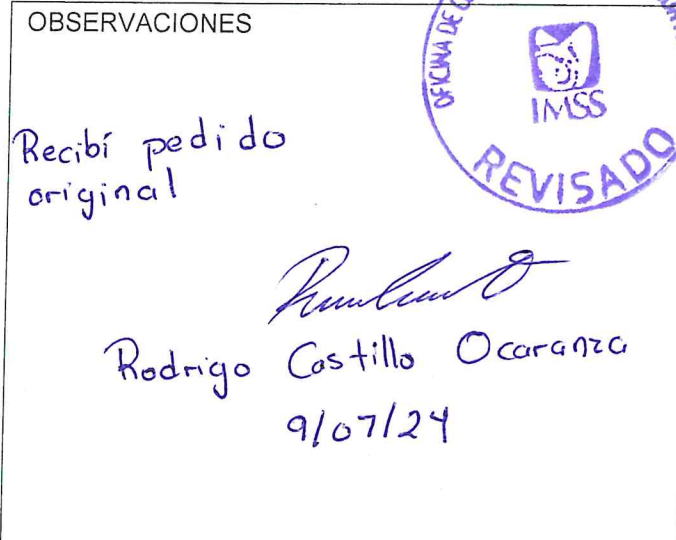 OBSERVACIONES
OFICINA DE
IMSS
REVISADO
Recibí pedido
original
Rodrigo Castillo Ocaranza
9/07/24